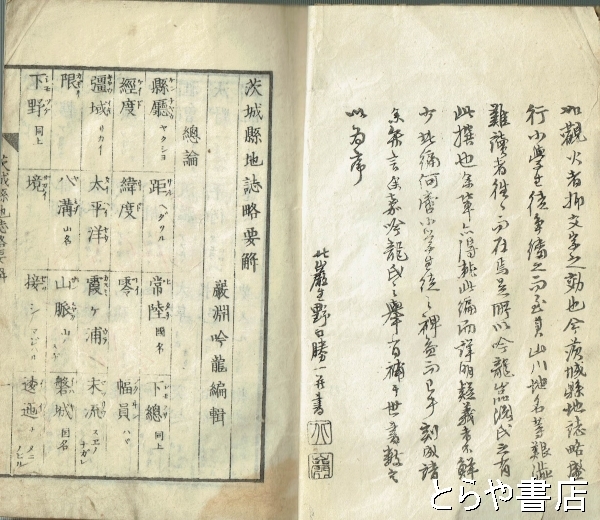 如觀火者抑文字之効也今茨城縣地誌略
行小學生徒争繙之而至其山川地名等艱澁
難讀者往々而在焉是所以吟龍岩淵氏之有
此撰也余輩亦得就此編而詳明疑義者不鮮
少此編何啻小學生徒之裨益而已乎刻成請
余弁言余嘉吟龍氏之舉有補于世書數言
以為序
北巖生野口勝一并書
茨城縣地誌略要解
巖淵吟龍編輯
總論
縣廳 ヤクショ 距 ヘダツル 常陸 國名 下總 同上
經度 緯度 零 幅員 ハヾ
彊域 サカイ 太平洋 霞ヶ浦 末流 スヱノナガレ
限 八溝 山名 山脈 磐城 國名
下野 同上 境 接 シ マジハル
とらや書店